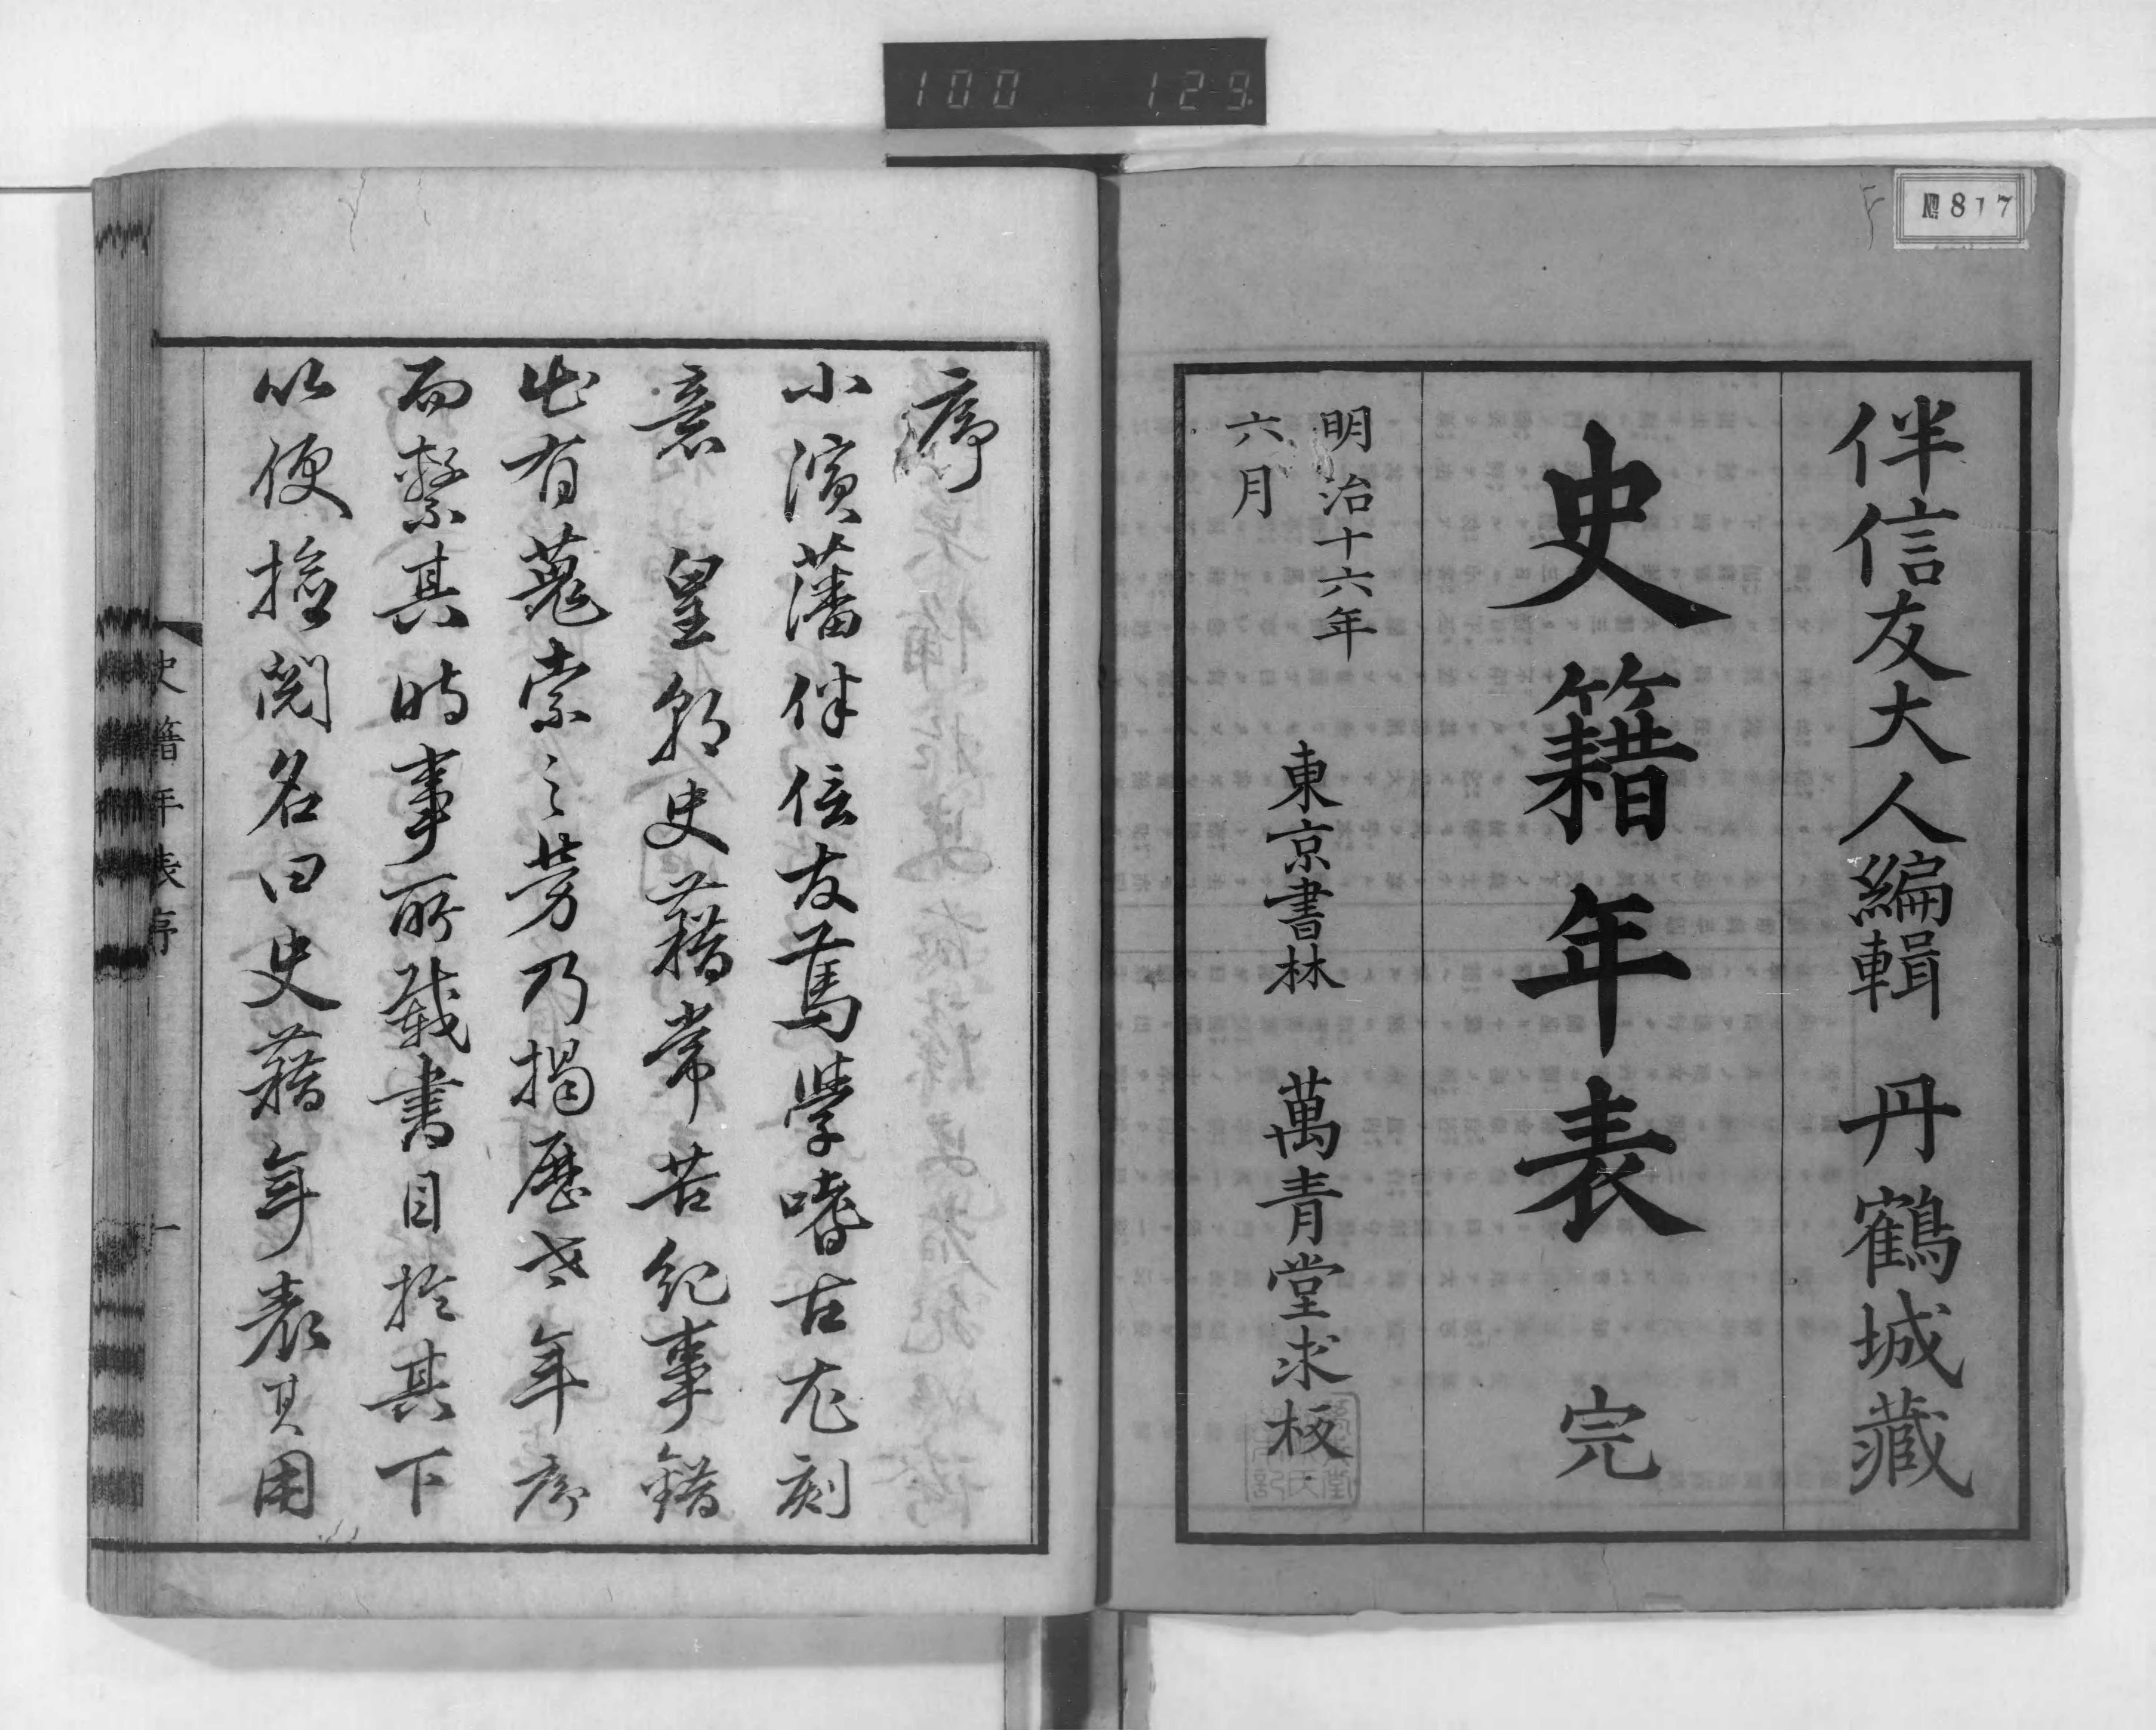 100 129
№817
伴信友大人編輯 丹鶴城藏
史籍年表 完
明治十六年
六月
東京書林 萬青堂求板
序
小濱藩伴信友篤學嗜古尤刻
意 皇朝史籍常苦紀事錯
出有蒐索之勞乃揭歷世年序
而繫其時事所載書目於其下
以便撿閱名曰史籍年表其用
史籍年表序 一